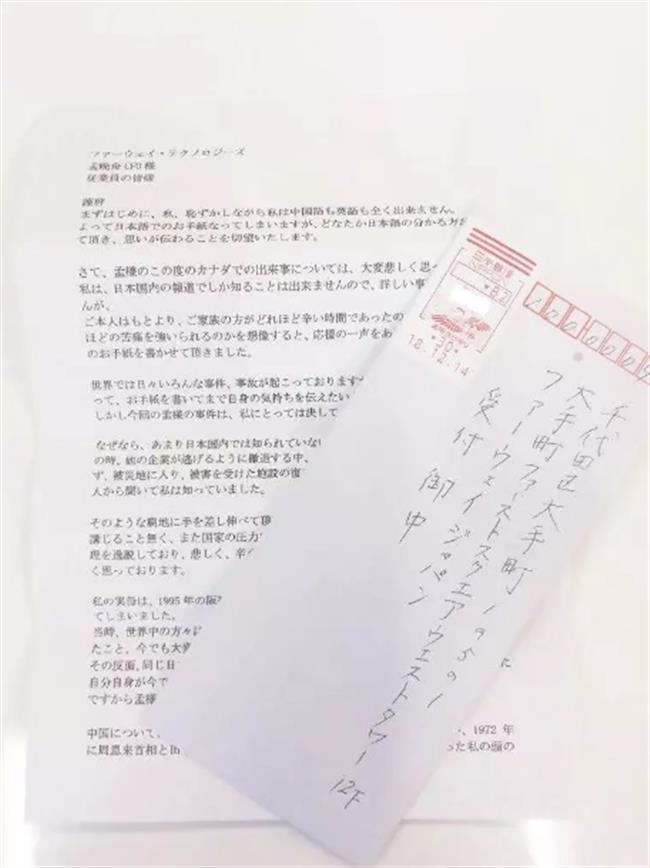 ファーウェイ・テクノロジーズ
孟晩舟 CFO 様
従業員の皆様
謹啓
まずはじめに、私、恥ずかしながら私は中国語も英語も全く出来ません。
よって日本語でのお手紙なってしまいますが、どなたか日本語の分かる方
て頂き、思いが伝わることを切望いたします。
さて、孟様のこの度のカナダでの出来事については、大変悲しく思
私は、日本国内の報道でしか知ることは出来ませんので、詳しい事
んが、
ご本人はもとより、ご家族の方がどれほど辛い時間であったの
ほどの苦痛を強いられるのかを想像すると、応援の一声をあ
のお手紙を書かせて頂きました。
世界では日々いろんな事件、事故が起こっております
って、お手紙を書いてまで自身の気持ちを伝えたい
しかし今回の孟様の事件は、私にとっては決して
なぜなら、あまり日本国内では知られていない
の時、他の企業が逃げるように撤退する中、
ず、被災地に入り、被害を受けた施設の復
人から聞いて私は知っていました。
そのような窮地に手を差し伸べて頂
講じること無く、また国家の圧力
理を逸脱しており、悲しく、辛
く思っております。
私の実母は、1995 年の阪
てしまいました。
当時、世界中の方々に
たこと、今でも大変
その反面、同じ日
自分自身が今で
ですから孟様
中国について、
、1972 年
に周恩来首相と
った私の頭の
82
30
18.12.14
千代田区大手町1の5の1
大手町ファーストスクエアウエストタワー12F
ファーウェイジャパン
受付 御中